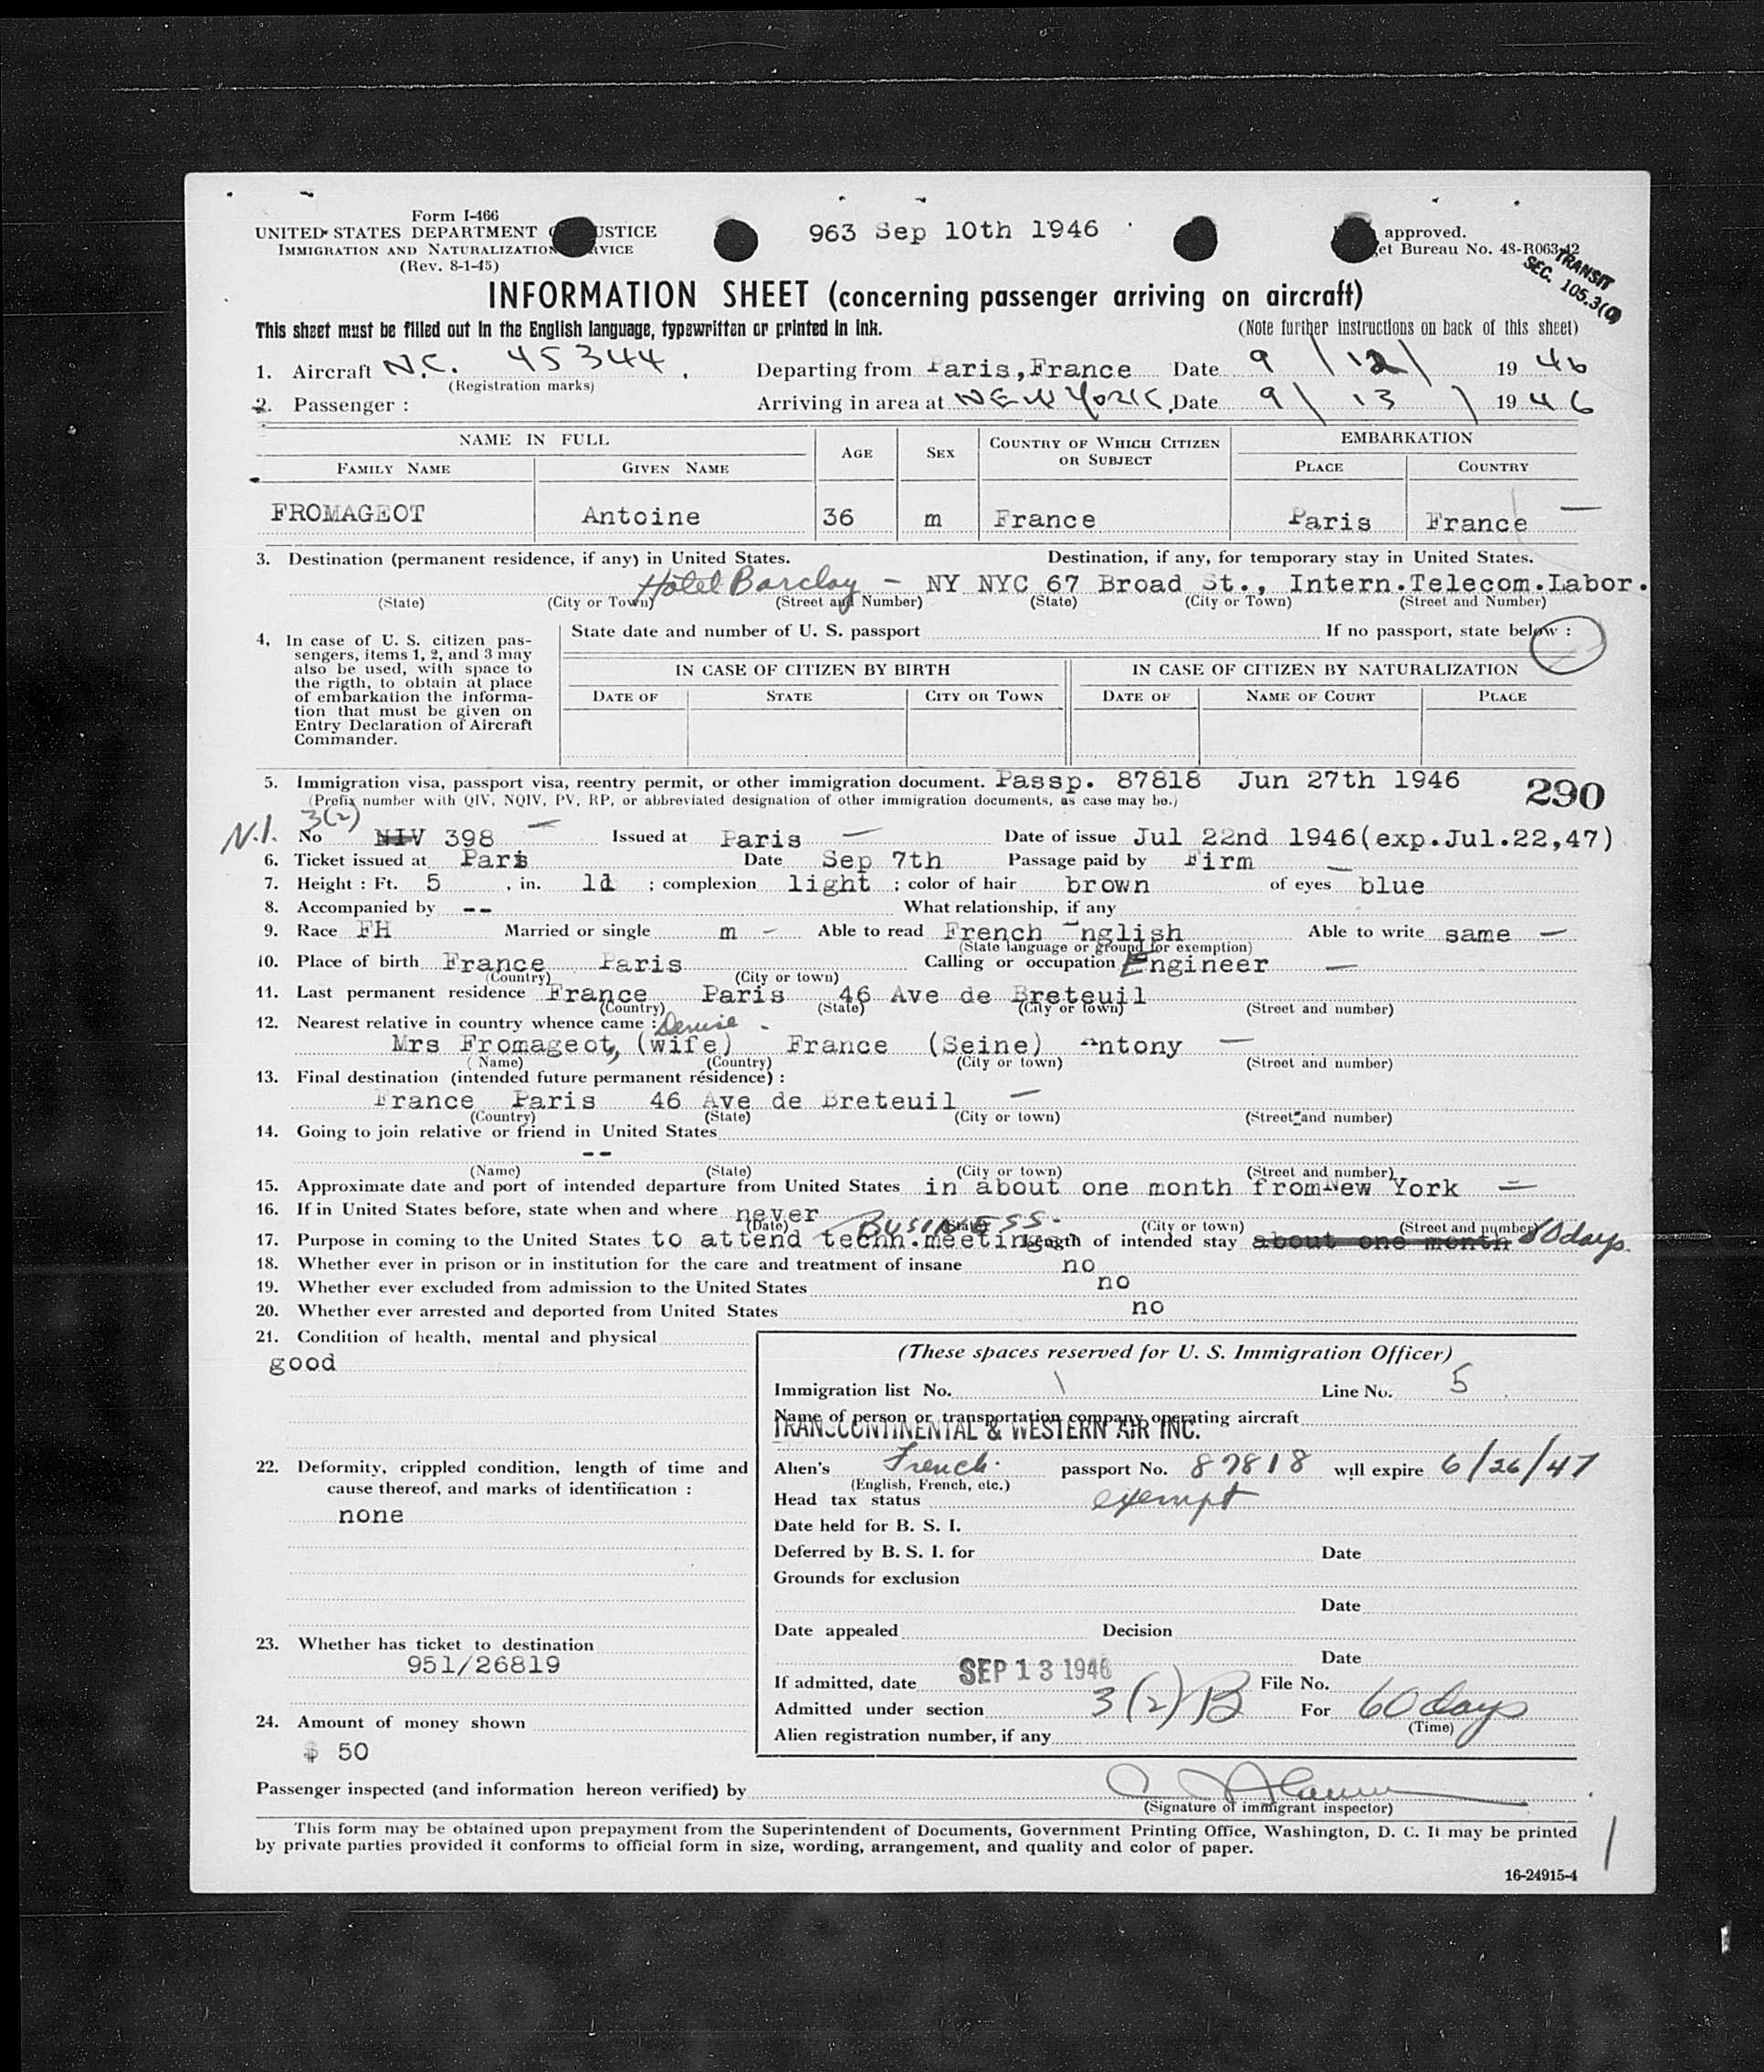 Form I-466
UNITED STATES DEPARTMENT USTICE
IMMIGRATION AND NATURALIZATION RVICE
(Rev. 8-1-45)
963 Sep 10th 1946
approved.
et Bureau No. 43-R063-42
TRANSIT
SEC. 105.3(
INFORMATION SHEET (concerning passenger arriving on aircraft)
This sheet must be filled out in the English language, typewritten or printed in ink. (Note further instructions on back of this sheet)
1. Aircraft N.C. 45344. Departing from Paris,France Date 9 / 12 / 1946
(Registration marks)
2. Passenger : Arriving in area at NEW YORK, Date 9 / 13 / 1946
NAME IN FULL AGE SEX COUNTRY OF WHICH CITIZEN OR SUBJECT EMBARKATION
FAMILY NAME GIVEN NAME PLACE COUNTRY
FROMAGEOT Antoine 36 m France Paris France
3. Destination (permanent residence, if any) in United States. Destination, if any, for temporary stay in United States.
Hotel Barclay - NY NYC 67 Broad St., Intern.Telecom.Labor.
(State) (City or Town) (Street and Number) (State) (City or Town) (Street and Number)
4. In case of U. S. citizen pas-
sengers, items 1, 2, and 3 may
also be used, with space to
the rigth, to obtain at place
of embarkation the informa-
tion that must be given on
Entry Declaration of Aircraft
Commander.
State date and number of U. S. passport If no passport, state below :
IN CASE OF CITIZEN BY BIRTH IN CASE OF CITIZEN BY NATURALIZATION
DATE OF STATE CITY OR TOWN DATE OF NAME OF COURT PLACE
5. Immigration visa, passport visa, reentry permit, or other immigration document. Passp. 87818 Jun 27th 1946
(Prefix number with QIV, NQIV, PV, RP, or abbreviated designation of other immigration documents, as case may be.)
290
N.I. 3(2)
No NIV 398 Issued at Paris Date of issue Jul 22nd 1946(exp.Jul.22,47)
6. Ticket issued at Paris Date Sep 7th Passage paid by Firm
7. Height : Ft. 5 , in. 11 ; complexion light ; color of hair brown of eyes blue
8. Accompanied by -- What relationship, if any
9. Race FH Married or single m - Able to read French English Able to write same
(State language or ground for exemption)
10. Place of birth France Paris Calling or occupation Engineer
(Country) (City or town)
11. Last permanent residence France Paris 46 Ave de Breteuil
(Country) (State) (City or town) (Street and number)
12. Nearest relative in country whence came : Denise
Mrs Fromageot, (wife) France (Seine) Antony
( Name) (Country) (City or town) (Street and number)
13. Final destination (intended future permanent résidence) :
France Paris 46 Ave de Breteuil
(Country) (State) (City or town) (Street and number)
14. Going to join relative or friend in United States
--
(Name) (State) (City or town) (Street and number)
15. Approximate date and port of intended departure from United States in about one month from New York
16. If in United States before, state when and where never
(Date) (State) (City or town) (Street and number)
BUSINESS.
17. Purpose in coming to the United States to attend techn.meetings Length of intended stay about one month 60 days.
18. Whether ever in prison or in institution for the care and treatment of insane no
19. Whether ever excluded from admission to the United States no
20. Whether ever arrested and deported from United States no
21. Condition of health, mental and physical
good
22. Deformity, crippled condition, length of time and
cause thereof, and marks of identification :
none
23. Whether has ticket to destination
951/26819
24. Amount of money shown
$ 50
(These spaces reserved for U. S. Immigration Officer)
Immigration list No. 1 Line No. 5
Name of person or transportation company operating aircraft
TRANSCONTINENTAL & WESTERN AIR INC.
Alien's French passport No. 87818 will expire 6/26/47
(English, French, etc.)
Head tax status exempt
Date held for B. S. I.
Deferred by B. S. I. for Date
Grounds for exclusion
Date
Date appealed Decision
Date
If admitted, date SEP 13 1946 File No.
Admitted under section 3(2)B For 60 days
(Time)
Alien registration number, if any
Passenger inspected (and information hereon verified) by
(Signature of immigrant inspector)
This form may be obtained upon prepayment from the Superintendent of Documents, Government Printing Office, Washington, D. C. It may be printed
by private parties provided it conforms to official form in size, wording, arrangement, and quality and color of paper.
16-24915-4